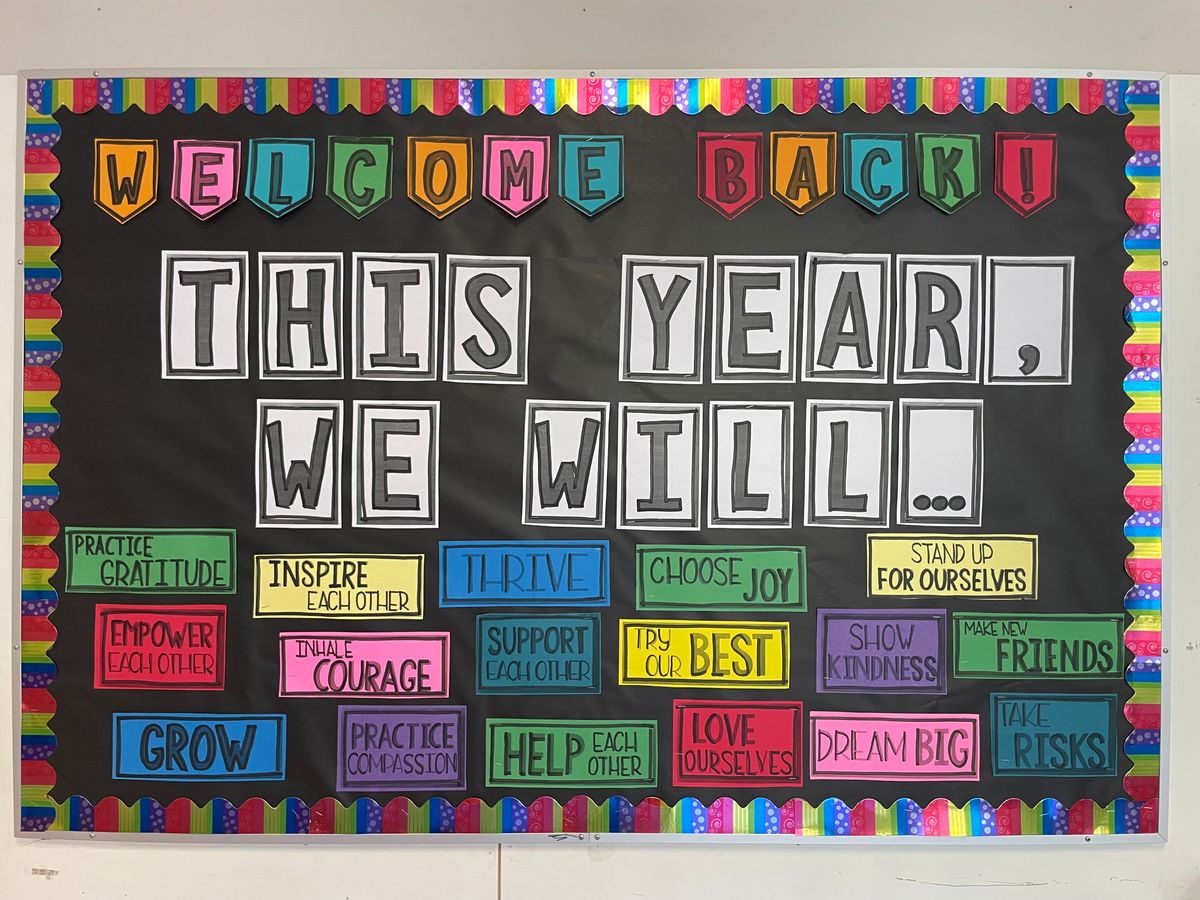 WELCOME BACK!
THIS YEAR,
WE WILL...
PRACTICE
GRATITUDE
INSPIRE
EACH OTHER
THRIVE
CHOOSE JOY
STAND UP
FOR OURSELVES
EMPOWER
EACH OTHER
INHALE
COURAGE
SUPPORT
EACH OTHER
TRY
OUR BEST
SHOW
KINDNESS
MAKE NEW
FRIENDS
GROW
PRACTICE
COMPASSION
HELP EACH
OTHER
LOVE
OURSELVES
DREAM BIG
TAKE
RISKS